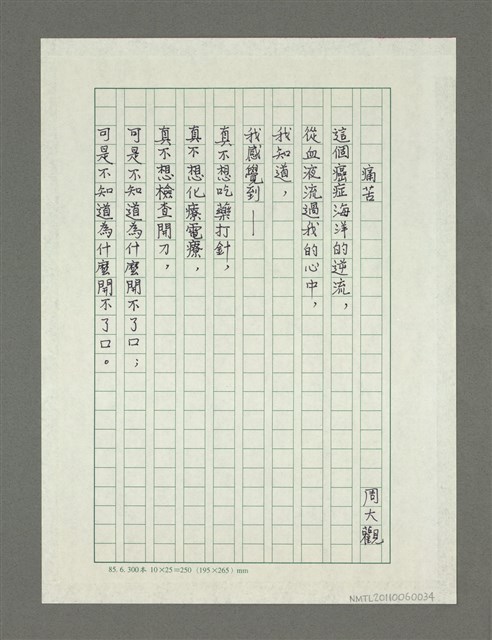 痛苦
周大觀
這個癌症海洋的逆流，
從血液流過我的心中，
我知道，
我感覺到——
真不想吃藥打針，
真不想化療電療，
真不想檢查開刀，
可是不知道為什麼開不了口；
可是不知道為什麼開不了口。
85. 6. 300本 10×25=250 (195×265) mm
NMTL20110060034